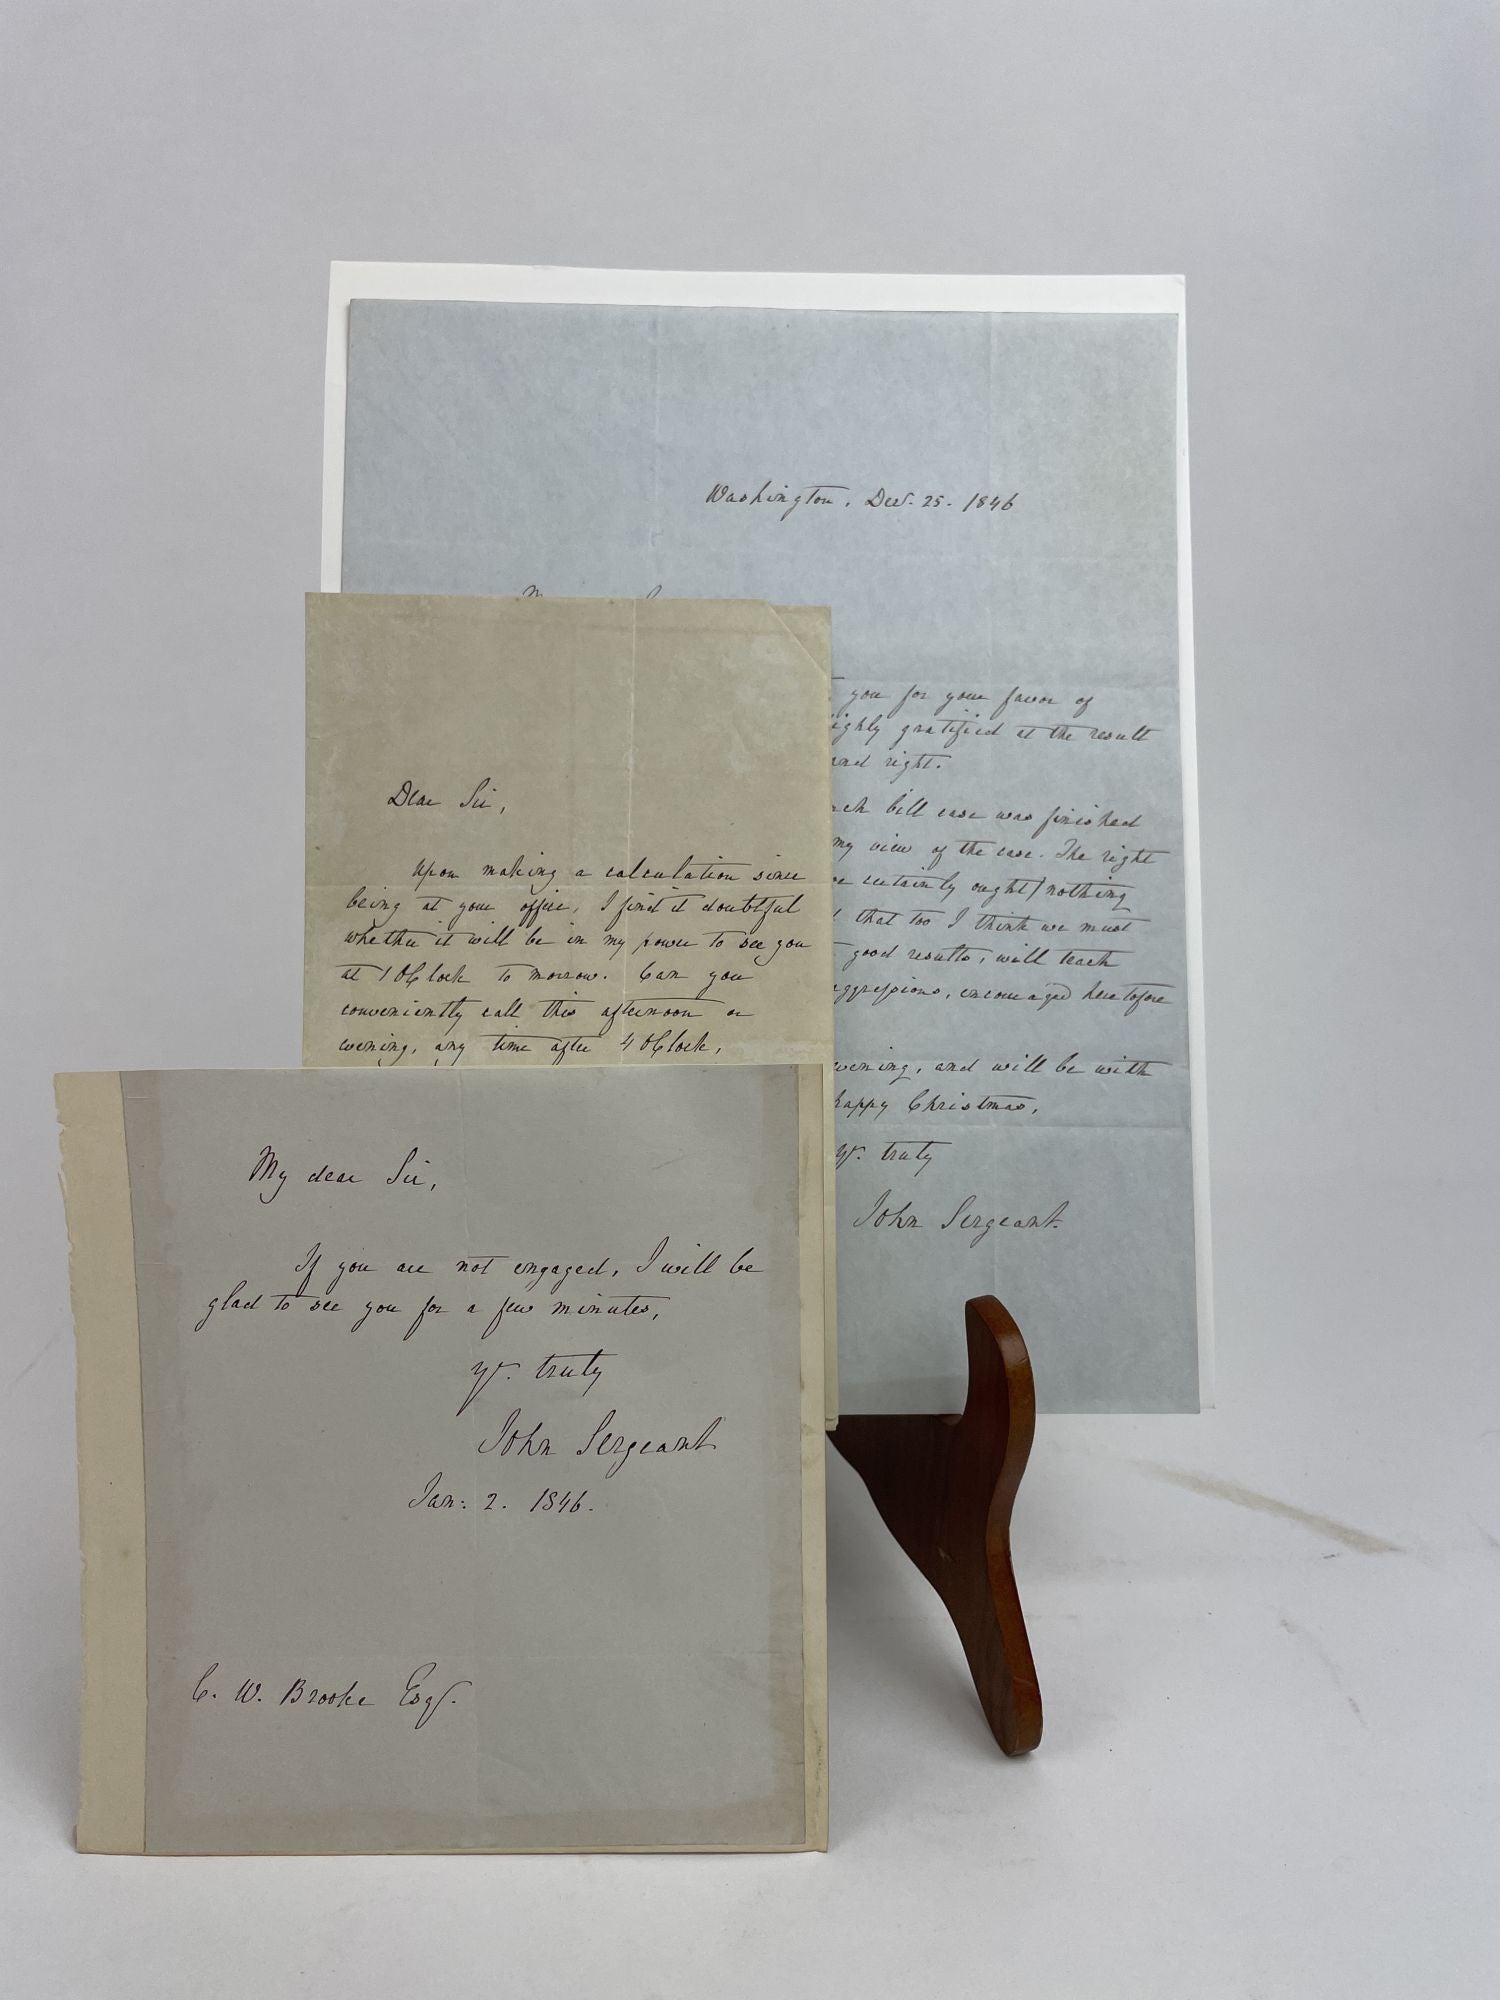 Washington, Dec. 25. 1846
you for your favor of
highly gratified at the result
and right.
bill case was finished
my view of the case. The right
certainly ought / nothing
that too I think we must
good results, will teach
aggressions, encouraged heretofore
evening, and will be with
happy Christmas,
yr. truly
John Sergeant.
Dear Sir,
Upon making a calculation since
being at your office, I find it doubtful
whether it will be in my power to see you
at 1 OClock to morrow. Can you
conveniently call this afternoon or
evening, any time after 4 OClock,
My dear Sir,
If you are not engaged, I will be
glad to see you for a few minutes,
yr. truly
John Sergeant
Jan: 2. 1846.
C. W. Brooke Esqr.